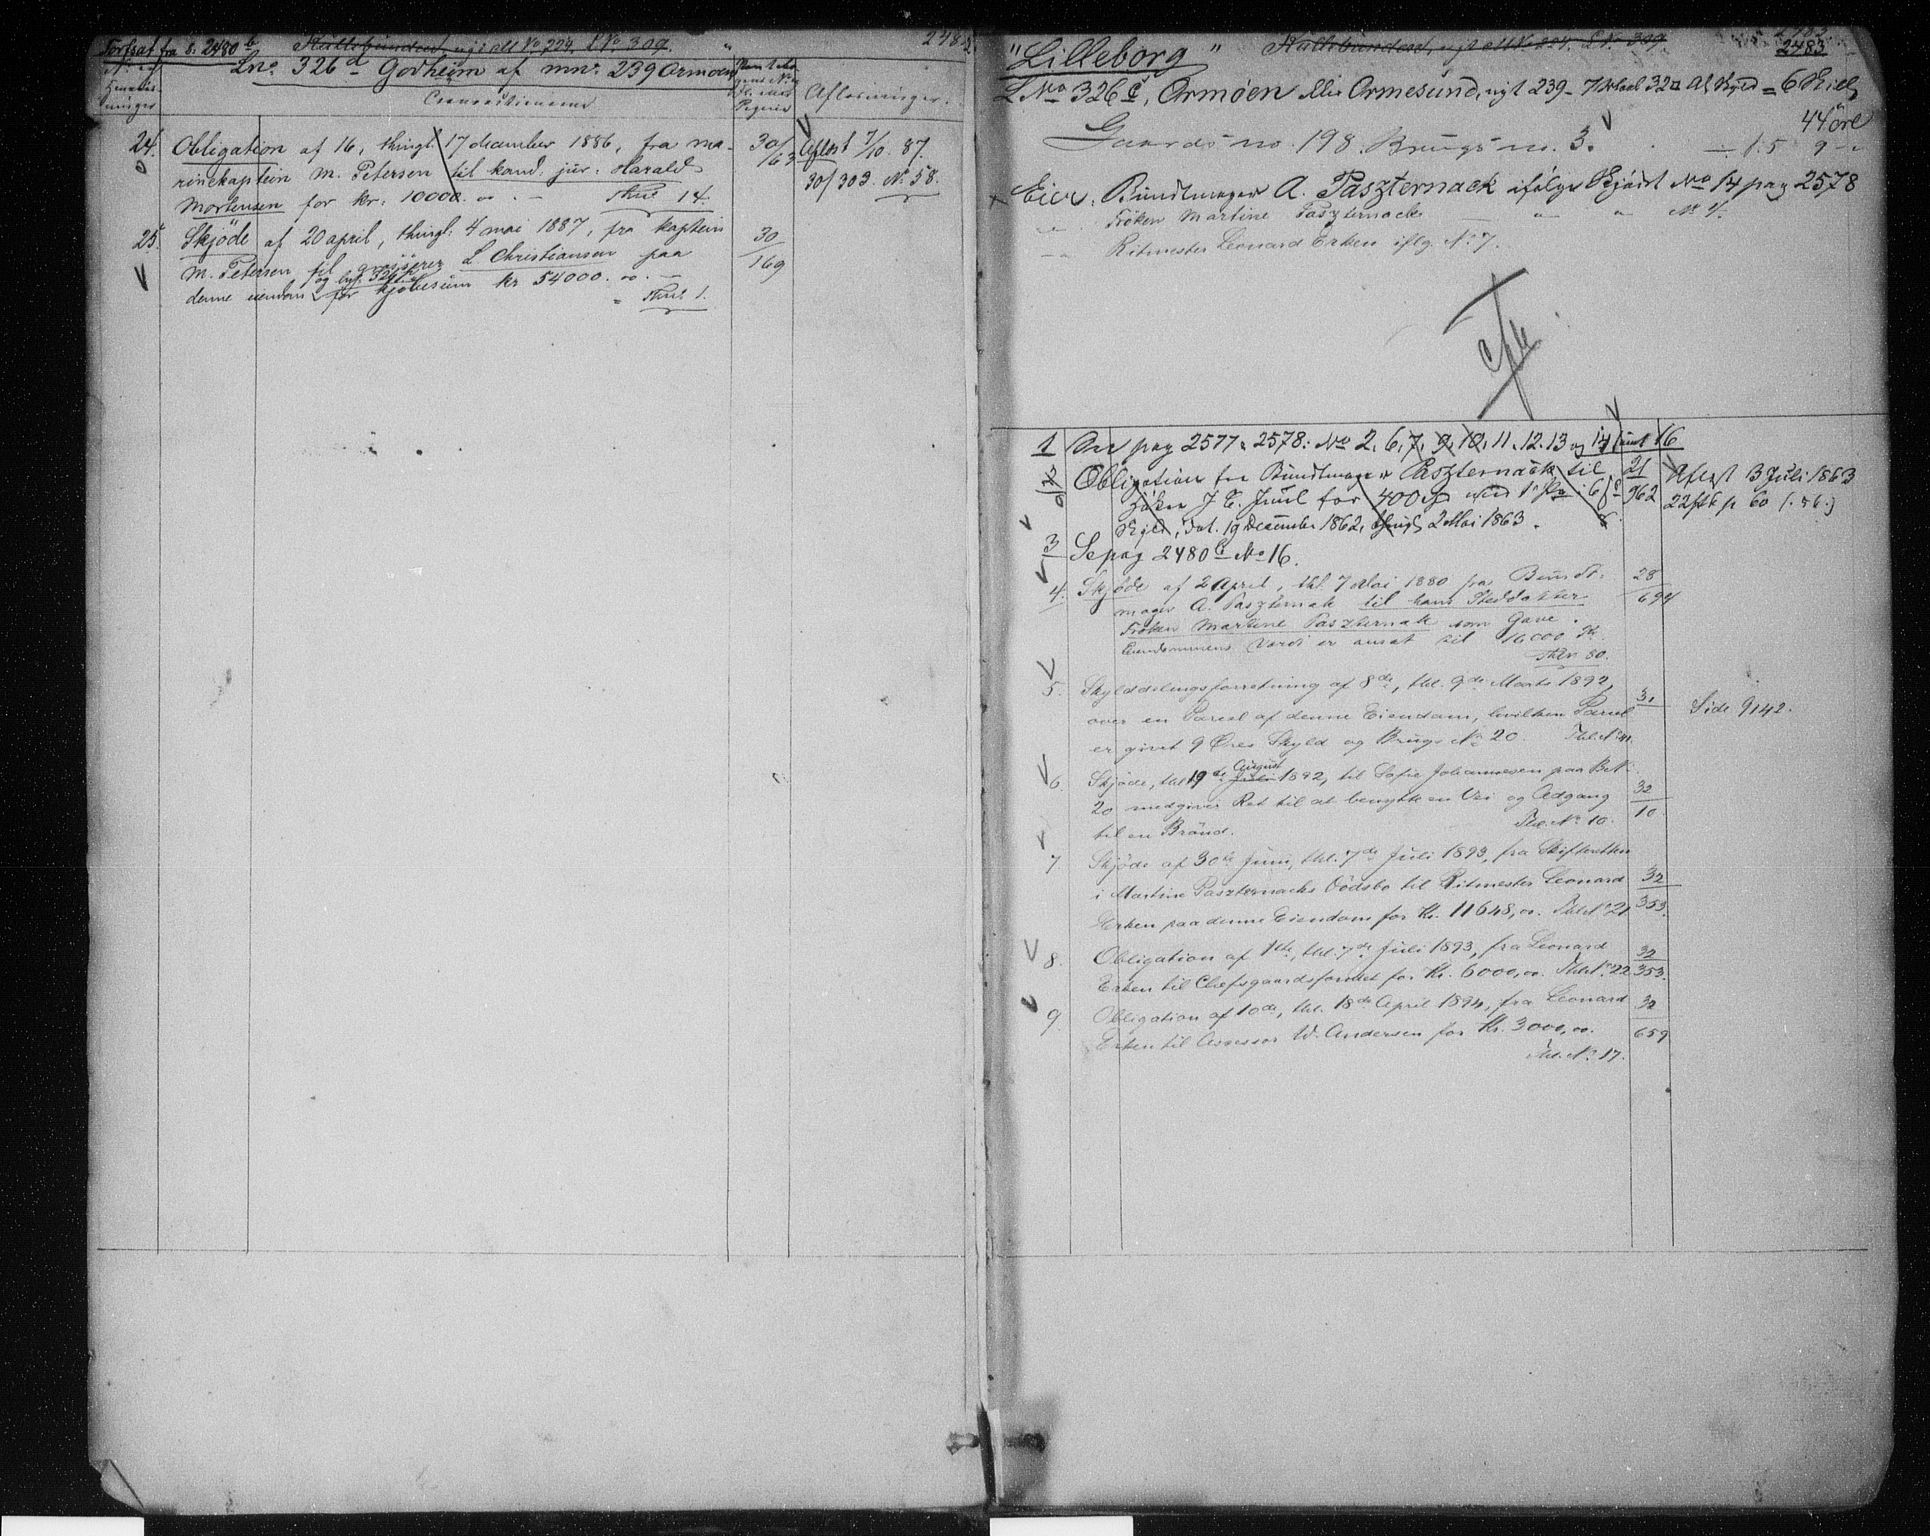 Fortsat fra S. 2480 b Kullebunden, nyt alt No 224. L No 309. 248
Lno. 326 d Godheim af mno. 239 Ormøen
Hæftelser
Transactionerne
Pantebogens No og Pagina
Afløsninger.
24. Obligation af 16, thingl. 17 december 1886, fra ma- 30/63 Afløst 7/10. 87.
rinekaptein M. Petersen til kand. jur. Harald 30/303. No. 58.
Mortensen for kr: 10000. 00. - Thne 14.
25. Skjøde af 20 april, thingl: 4 mai 1887, fra kaptein 30/169
M. Petersen til grosserer L. Christiansen paa
denne eiendom og lnr. 326 for kjøbesum kr 54000. 00. —
Thne 1.
"Lilleborg" Kullebunden, nyt alt No 224. L No 309. 2483
L No 326 c, Ormøen eller Ormesund, nyt 239 - 7 Skaal 32 Al Skyld = 6 Skill
44 øre
Gaards no. 198. Brugs no. 3.
Eier. Bundtmager A. Paszternack ifølge Skjöde No 14 pag 2578
Frøken Martine Paszternack — " — " No 4.
Ritmester Leonard Erken iflg. No. 7.
1 See pag 2577 & 2578: No 2, 6, 7, 9, 10, 11. 12. 13 og 14 samt 16
2 Obligation fra Bundtmager Paszternack til 21/962 Afløst 3 Juli 1863
J. C. Juul for 400 Spd med 1ste Pr. i 22 p 60
Eied, Dat. 19 December 1862, thingl. 2 Mai 1863.
3 Se pag 2480 No 16.
4. Skjöde af 2 April, thl. 7 Mai 1880 fra Bundt- 28/694
mager A. Paszternak til hans Steddatter
Frøken Martine Paszternak som Gave.
Eiendommens Værdi er ansat til 16000 Kr.
Thln 80.
5. Skylddelingsforretning af 8de, thl. 9de Marts 1892, 31
over en Parcel af denne Eiendom, hvilken Parcel Side 9142.
er givet 9 Øres Skyld og Brugs No. 20. Thl. No.
6. Skjöde, thl. 19de Juli August 1892, til Sofie Johannesen paa B. No. 32/10.
20 medgiver Ret til at benytte en Vei og Adgang
til en Brönd. Thl. No. 10.
7 Skjöde af 30te Juni, thl. 7de Juli 1893, fra Skifteretten 32/353.
i Martine Paszternacks Dödsbo til Ritmester Leonard
Erken paa denne Eiendom for Kr. 11648,00. Thl. No. 21
8. Obligation af 1ste, thl. 7de Juli 1893, fra Leonard 32/353.
Erken til Chefsgaardsfondet for Kr. 6000,00. Thl. No. 22
9. Obligation af 10de, thl. 18de April 1894, fra Leonard 32/659
Erken til Assessor W. Andersen for Kr. 3000,00.
Thl. No. 17.